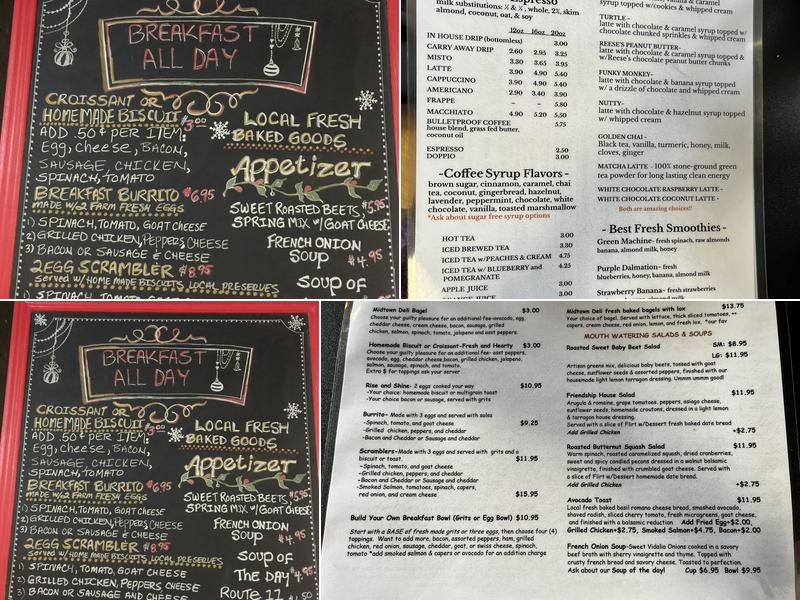 BREAKFAST
ALL DAY
CROISSANT OR
HOMEMADE BISCUIT $3.00
ADD .50¢ PER ITEM:
Egg, cheese, BACON,
SAUSAGE, CHICKEN,
SPINACH, TOMATO
BREAKFAST BURRITO $6.95
MADE W/2 FARM FRESH EGGS
1) SPINACH, TOMATO, GOAT CHEESE
2) GRILLED CHICKEN, PEPPERS CHEESE
3) BACON OR SAUSAGE & CHEESE
2EGG SCRAMBLER $8.95
Served w/ HOME MADE BISCUITS, LOCAL PRESERVES
1) SPINACH, TOMATO, GOAT CHEESE
LOCAL FRESH
BAKED GOODS
Appetizer
SWEET ROASTED BEETS, $5.95
SPRING MIX w/GOAT CHEESE
FRENCH ONION
SOUP $4.95
SOUP OF
Espresso
milk substitutions: ½ & ½, whole, 2%, skim
almond, coconut, oat, & soy
12oz 16oz 20oz
IN HOUSE DRIP (bottomless) 3.00
CARRY AWAY DRIP 2.60 2.95 3.25
MISTO 3.30 3.65 3.95
LATTE 3.90 4.90 5.40
CAPPUCCINO 3.90 4.90 5.40
AMERICANO 2.90 3.40 3.90
FRAPPE – – 5.80
MACCHIATO 4.90 5.20 5.50
BULLETPROOF COFFEE 5.75
house blend, grass fed butter,
coconut oil
ESPRESSO 2.50
DOPPIO 3.00
-Coffee Syrup Flavors-
brown sugar, cinnamon, caramel, chai
tea, coconut, gingerbread, hazelnut,
lavender, peppermint, chocolate, white
chocolate, vanilla, toasted marshmallow
*Ask about sugar free syrup options
HOT TEA 3.00
ICED BREWED TEA 3.30
ICED TEA w/PEACHES & CREAM 4.75
ICED TEA w/ BLUEBERRY and 4.25
POMEGRANATE
APPLE JUICE 3.00
ORANGE JUICE
syrup topped w/cookies & whipped cream
TURTLE -
latte with chocolate & caramel syrup topped w/
chocolate chunked sprinkles & whipped cream
REESE'S PEANUT BUTTER-
latte with chocolate & caramel syrup topped &
w/Reese's chocolate peanut butter chunks
FUNKY MONKEY-
latte with chocolate & banana syrup topped
w/ a drizzle of chocolate and whipped cream
NUTTY-
latte with chocolate & hazelnut syrup topped
w/ whipped cream
GOLDEN CHAI -
Black tea, vanilla, turmeric, honey, milk,
cloves, ginger
MATCHA LATTE - 100% stone-ground green
tea powder for long lasting clean energy
WHITE CHOCOLATE RASPBERRY LATTE -
WHITE CHOCOLATE COCONUT LATTE -
Both are amazing choices!!
- Best Fresh Smoothies -
Green Machine- fresh spinach, raw almonds
banana, almond milk, honey
Purple Dalmation- fresh
blueberries, honey, banana, almond milk
Strawberry Banana- fresh strawberries
BREAKFAST
ALL DAY
CROISSANT OR
HOMEMADE BISCUIT $3.00
ADD .50¢ PER ITEM:
Egg, cheese, BACON,
SAUSAGE, CHICKEN,
SPINACH, TOMATO
BREAKFAST BURRITO $6.95
MADE W/2 FARM FRESH EGGS
1) SPINACH, TOMATO, GOAT CHEESE
2) GRILLED CHICKEN, PEPPERS CHEESE
3) BACON OR SAUSAGE & CHEESE
2EGG SCRAMBLER $8.95
Served w/ HOME MADE BISCUITS, LOCAL PRESERVES
1) SPINACH, TOMATO, GOAT CHEESE
2) GRILLED CHICKEN, PEPPERS CHEESE
3) BACON OR SAUSAGE AND CHEESE
LOCAL FRESH
BAKED GOODS
Appetizer
SWEET ROASTED BEETS, $5.95
SPRING MIX w/GOAT CHEESE
FRENCH ONION
SOUP $4.95
SOUP OF
THE DAY $4.95
ROUTE 11 $1.50
Midtown Deli Bagel $3.00
Choose your guilty pleasure for an additional fee-avocado, egg,
cheddar cheese, cream cheese, bacon, sausage, grilled
chicken, salmon, spinach, tomato, jalapeno and asst peppers.
Homemade Biscuit or Croissant-Fresh and Hearty $3.00
Choose your guilty pleasure for an additional fee- asst peppers,
avocado, egg, cheddar cheese,bacon, grilled chicken, jalapeno,
salmon, sausage, spinach, and tomato.
Extra $ for toppings ask your server
Rise and Shine- 2 eggs cooked your way $10.95
-Your choice: homemade biscuit or multigrain toast
-Your choice bacon or sausage, served with grits
Burrito- Made with 3 eggs and served with salsa
-Spinach, tomato, and goat cheese $9.25
-Grilled chicken, peppers, and cheddar
-Bacon and Cheddar or Sausage and cheddar
Scramblers-Made with 3 eggs and served with grits and a
biscuit or toast. $11.95
-Spinach, tomato, and goat cheese
-Grilled chicken, peppers, and cheddar
-Bacon and Cheddar or Sausage and cheddar
-Smoked Salmon, tomatoes, spinach, capers,
red onion, and cream cheese $15.95
Build Your Own Breakfast Bowl (Grits or Egg Bowl) $10.95
Start with a BASE of fresh made grits or three eggs, then choose four (4)
toppings. Want to add more, bacon, assorted peppers, ham, grilled
chicken, red onion, sausage, cheddar, goat, or swiss cheese, spinach,
tomato *add smoked salmon & capers or avocado for an addition charge
Midtown Deli fresh baked bagels with lox $13.75
Your choice of bagel. Served with lettuce, thick sliced tomatoes, **
capers, cream cheese, red onion, lemon, and fresh lox. *our fav
MOUTH WATERING SALADS & SOUPS
Roasted Sweet Baby Beet Salad SM: $8.95
LG: $11.95
Artisan greens mix, delicious baby beets, tossed with goat
cheese, sunflower seeds & assorted peppers, finished with our
housemade light lemon tarragon dressing. Ummm ummm good!
Friendship House Salad $11.95
Arugula & romaine, grape tomatoes, peppers, asiago cheese,
sunflower seeds, homemade croutons, dressed in a light lemon
& tarragon house dressing.
Served with a slice of Flirt w/Dessert fresh baked date bread
Add Grilled Chicken +$2.75
Roasted Butternut Squash Salad $11.95
Warm spinach, roasted caramelized squash, dried cranberries,
sweet and spicy candied pecans dressed in a walnut balsamic
vinaigrette, finished with crumbled goat cheese. Served with
a slice of Flirt w/Dessert homemade date bread.
Add Grilled Chicken +$2.75
Avocado Toast $11.95
Local fresh baked basil romano cheese bread, smashed avocado,
shaved radish, sliced cherry tomato, fresh microgreens, goat cheese,
and finished with a balsamic reduction Add Fried Egg+$2.00,
Grilled Chicken+$2.75, Smoked Salmon+$4.75, Bacon+$2.00
French Onion Soup-Sweet Vidalia Onions cooked in a savory
beef broth with sherry vinaigrette and thyme. Topped with
crusty french bread and savory cheese. Toasted to perfection.
Ask about our Soup of the day! Cup $6.95 Bowl $9.95